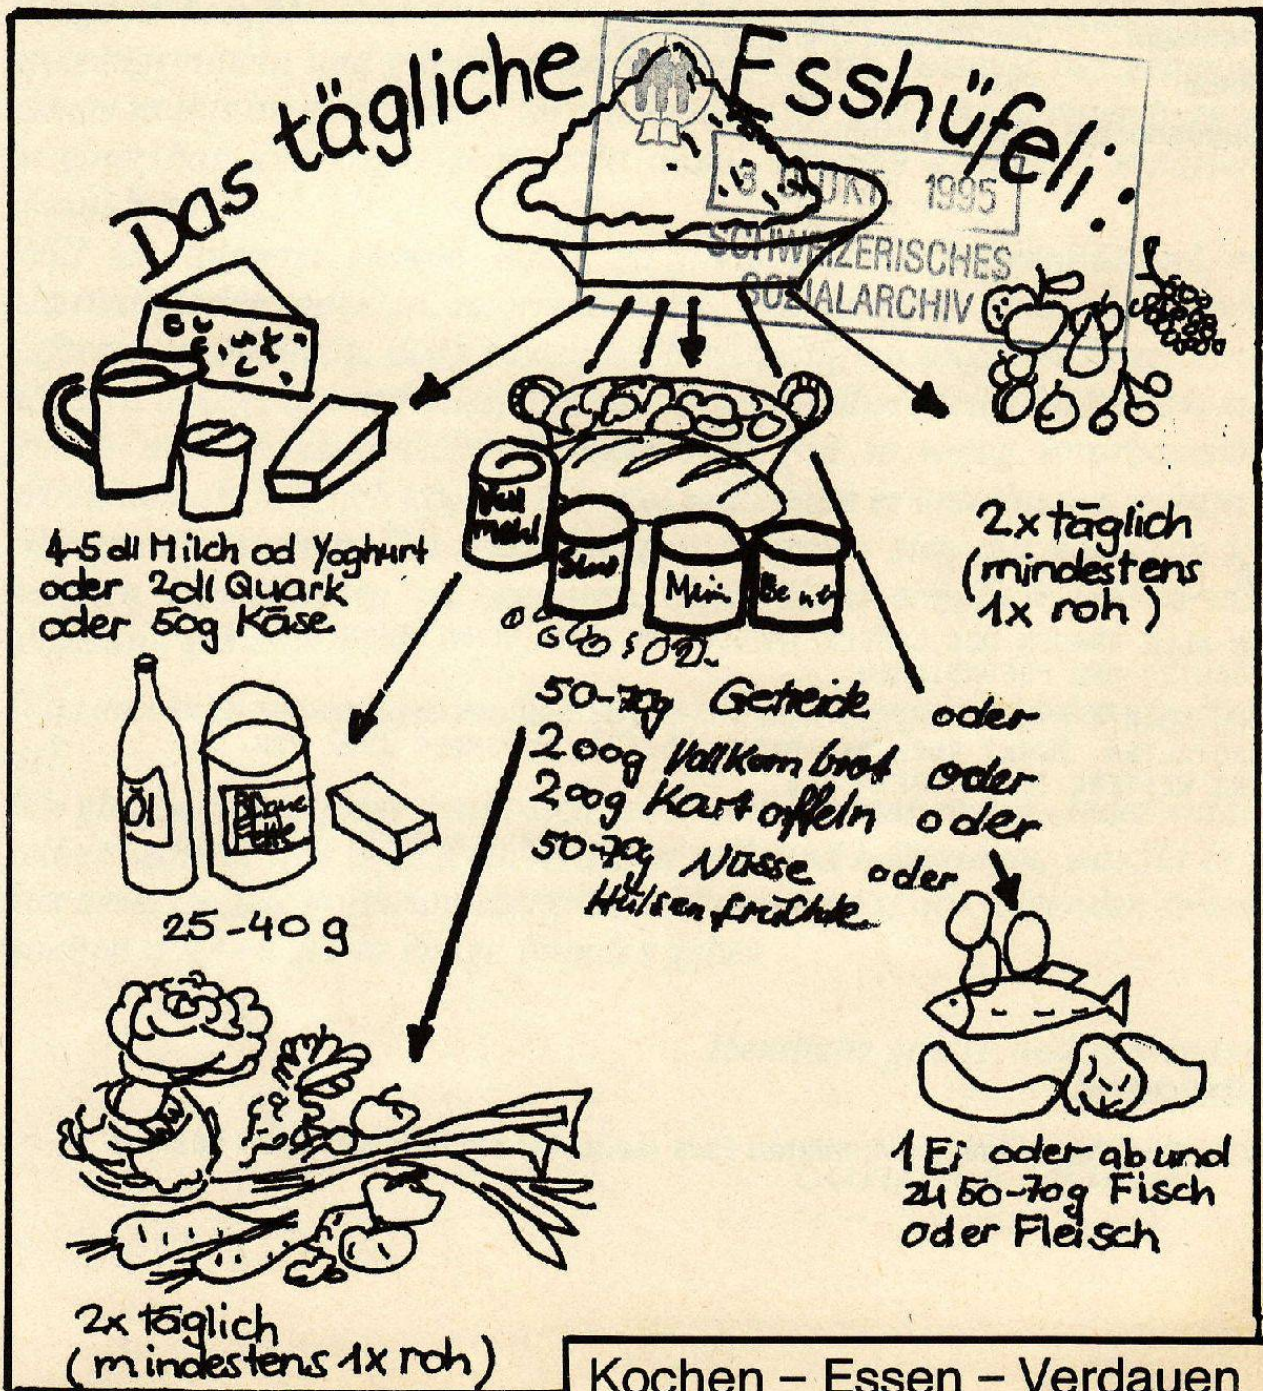 Das tägliche Esshüfeli:
OKT. 1995
SCHWEIZERISCHES
SOZIALARCHIV
4-5 dl Milch od Yoghurt
oder 2dl Quark
oder 50g Käse
2x täglich
(mindestens
1x roh)
Voll
mehl
50-70g Getreide oder
200g Vollkornbrot oder
200g Kartoffeln oder
50-70g Nüsse oder
Hülsenfrüchte
Öl
25-40 g
1 Ei oder ab und
zu 50-70g Fisch
oder Fleisch
2x täglich
(mindestens 1x roh)
Kochen – Essen – Verdauen